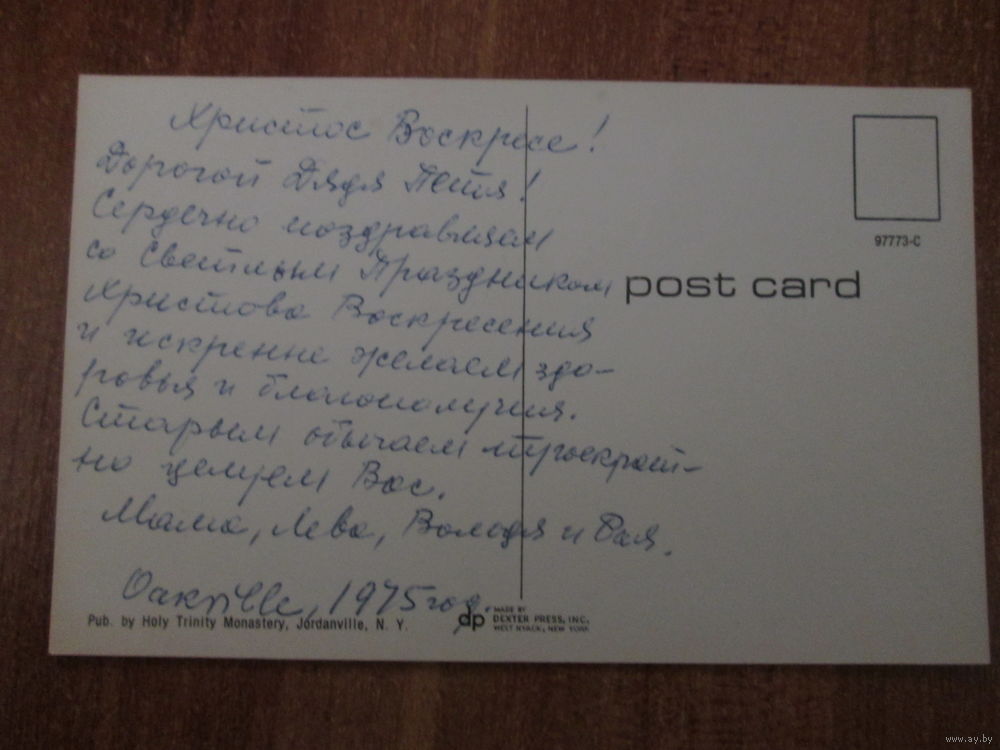 Христос Воскресе!
Дорогой Дядя Петя!
Сердечно поздравляем
со Светлым Праздником
Христова Воскресения
и искренне желаем здо-
ровья и благополучия.
Старым обычаем троекрат-
но целуем Вас.
Мама, Лева, Володя и Рая.
Oakville, 1975 год
97773-C
post card
Pub. by Holy Trinity Monastery, Jordanville, N. Y.
dp
MADE BY
DEXTER PRESS, INC.
WEST NYACK, NEW YORK
www.ay.by